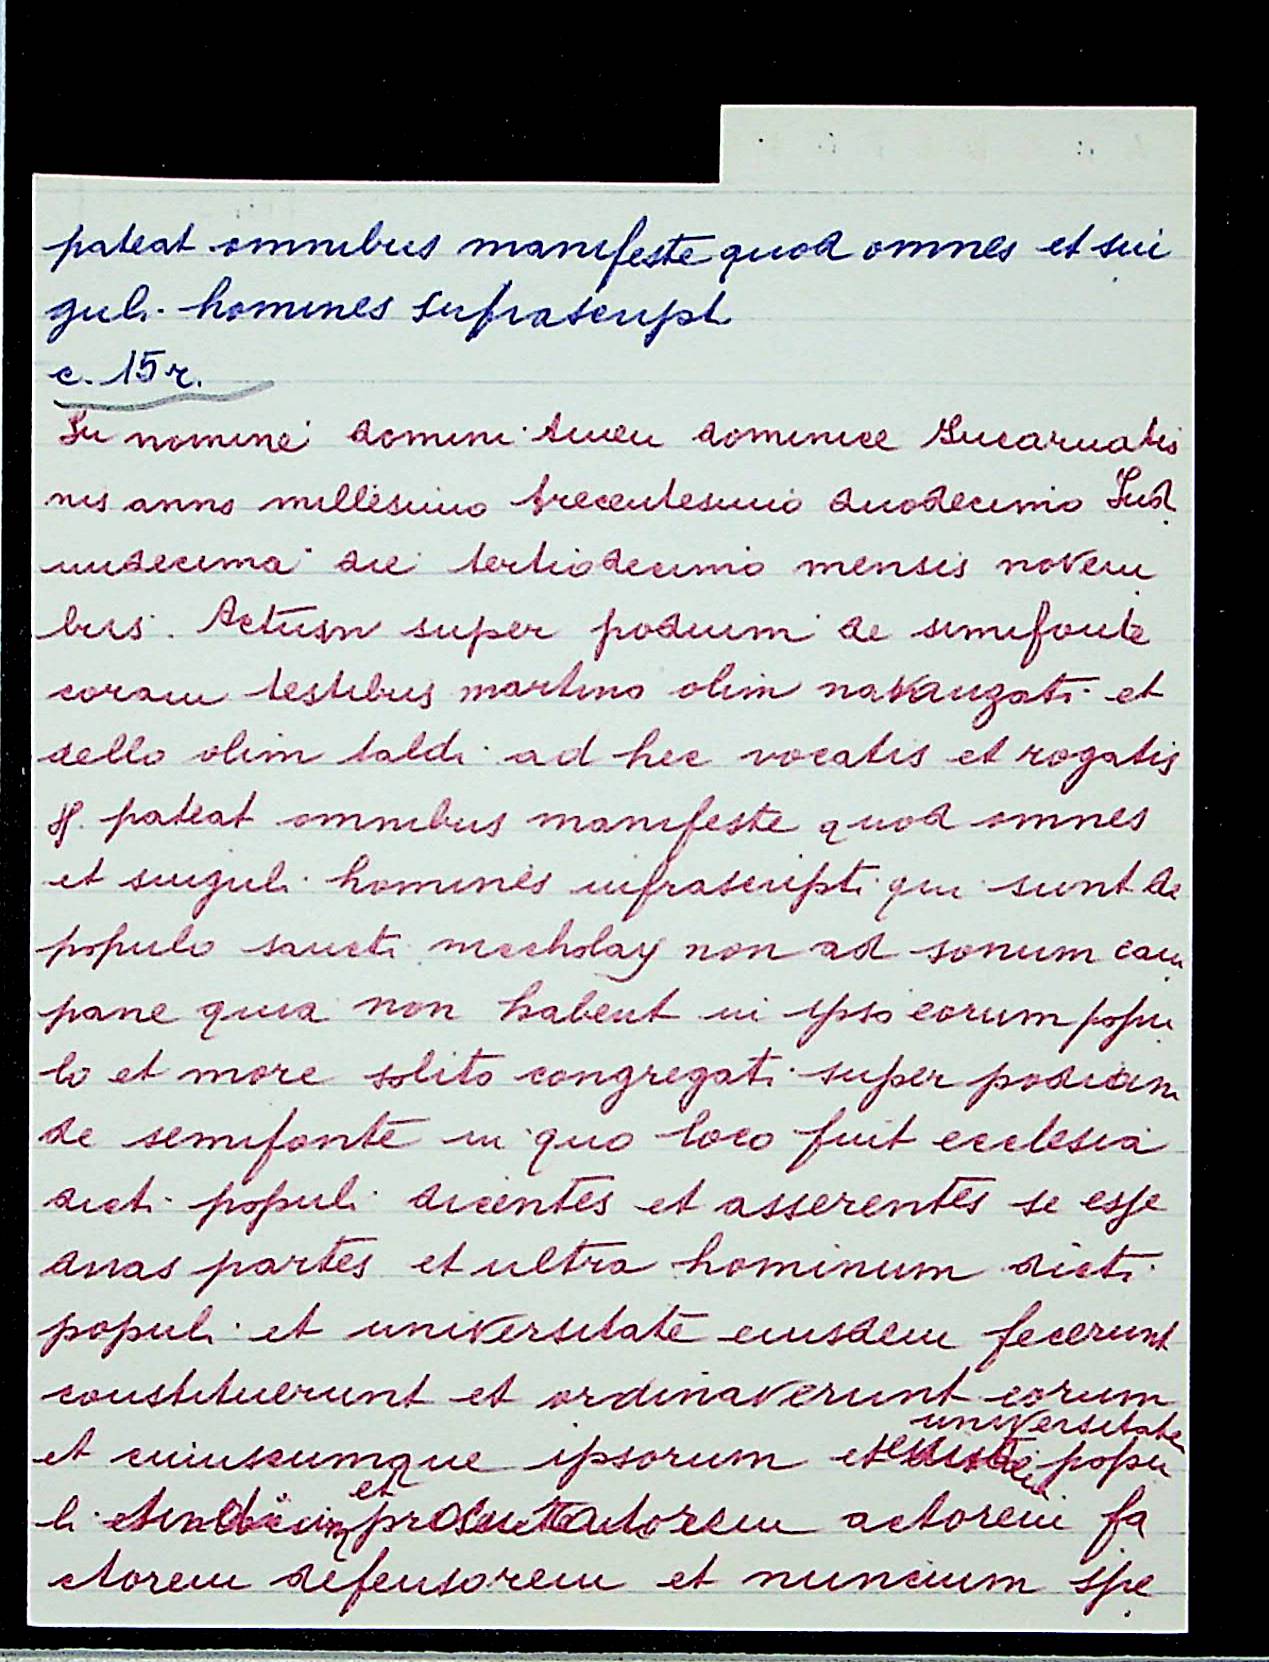 pateat omnibus manifeste quod omnes et sin
guli homines sufrascripti
c. 15 r.
In nomine domini amen dominice Incarnatio
nis anno millesimo trecentesimo duodecimo Ind.
undecima die tertiodecimo mensis novem
bris. Actum super podium de simifonte
coram testibus martino olim navanzati et
dello olim taldi ad hec vocatis et rogatis
pateat omnibus manifeste quod omnes
et singuli homines infrascripti qui sunt de
populo sancti niccholay non ad sonum cam
pane quia non habent in ipso eorum popu
lo et more solito congregati super podium
de semifonte in quo loco fuit ecclesia
dicti populi dicentes et asserentes se esse
duas partes et ultra hominum dicti
populi et universitate eiusdem fecerunt
constituerunt et ordinaverunt eorum
universitate
et cuiuscumque ipsorum et popu
li et actorem fa
ctorem defensorem et nuncium spe